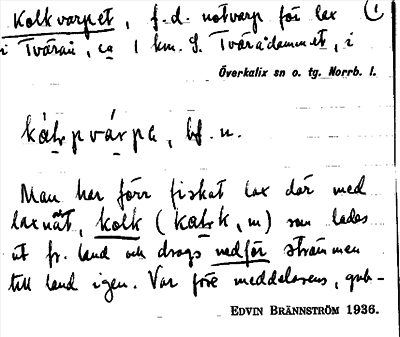 Kolkvarpet, f.d. notvarp för lax 1
i Tvärån, ca 1 km. S. Tvärådammet, i
Överkalix sn o. tg. Norrb. l.
bf. n.
Man har förr fiskat lax där med
laxnät, kolk (kåḷk, m) som lades
ut fr. land och drogs nedför strömmen
till land igen. Var före meddelarens, gub-
EDVIN BRÄNNSTRÖM 1936.